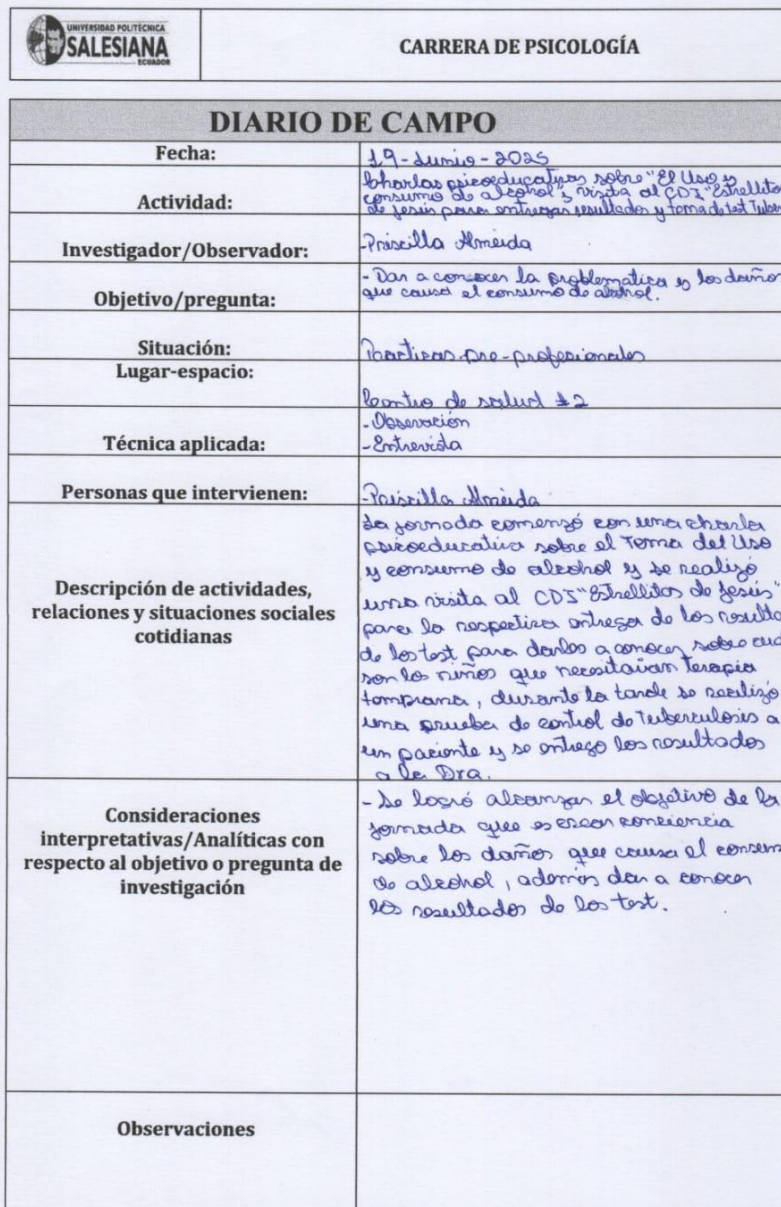 UNIVERSIDAD POLITÉCNICA
SALESIANA
ECUADOR
CARRERA DE PSICOLOGÍA
DIARIO DE CAMPO
Fecha:
19-Junio-2025
Actividad:
Charlas psicoeducativas sobre "El Uso y
consumo de alcohol", visita al CDI "Estrellitos
de Jesús para entregar resultados y toma de test Tuber
Investigador/Observador:
-Priscilla Almeida
Objetivo/pregunta:
- Dar a conocer la problematica y los daños
que causa el consumo de alcohol.
Situación:
Practicas pre-profesionales
Lugar-espacio:
Centro de salud #2
Técnica aplicada:
-Observación
-Entrevista
Personas que intervienen:
-Priscilla Almeida
Descripción de actividades,
relaciones y situaciones sociales
cotidianas
La jornada comenzó con una charla
psicoeducativa sobre el Tema del Uso
y consumo de alcohol y se realizó
una visita al CDI "Estrellitos de Jesús"
para la respectiva entrega de los resulta
de los test para darles a conocer sobre cua
son los niños que necesitaran Terapia
temprana, durante la tarde se realizó
una prueba de control de Tuberculosis a
un paciente y se entrego los resultados
a la Dra.
Consideraciones
interpretativas/Analíticas con
respecto al objetivo o pregunta de
investigación
- Se logró alcanzar el objetivo de la
jornada que es crear conciencia
sobre los daños que causa el consum
de alcohol, además dar a conocer
los resultados de los test.
Observaciones